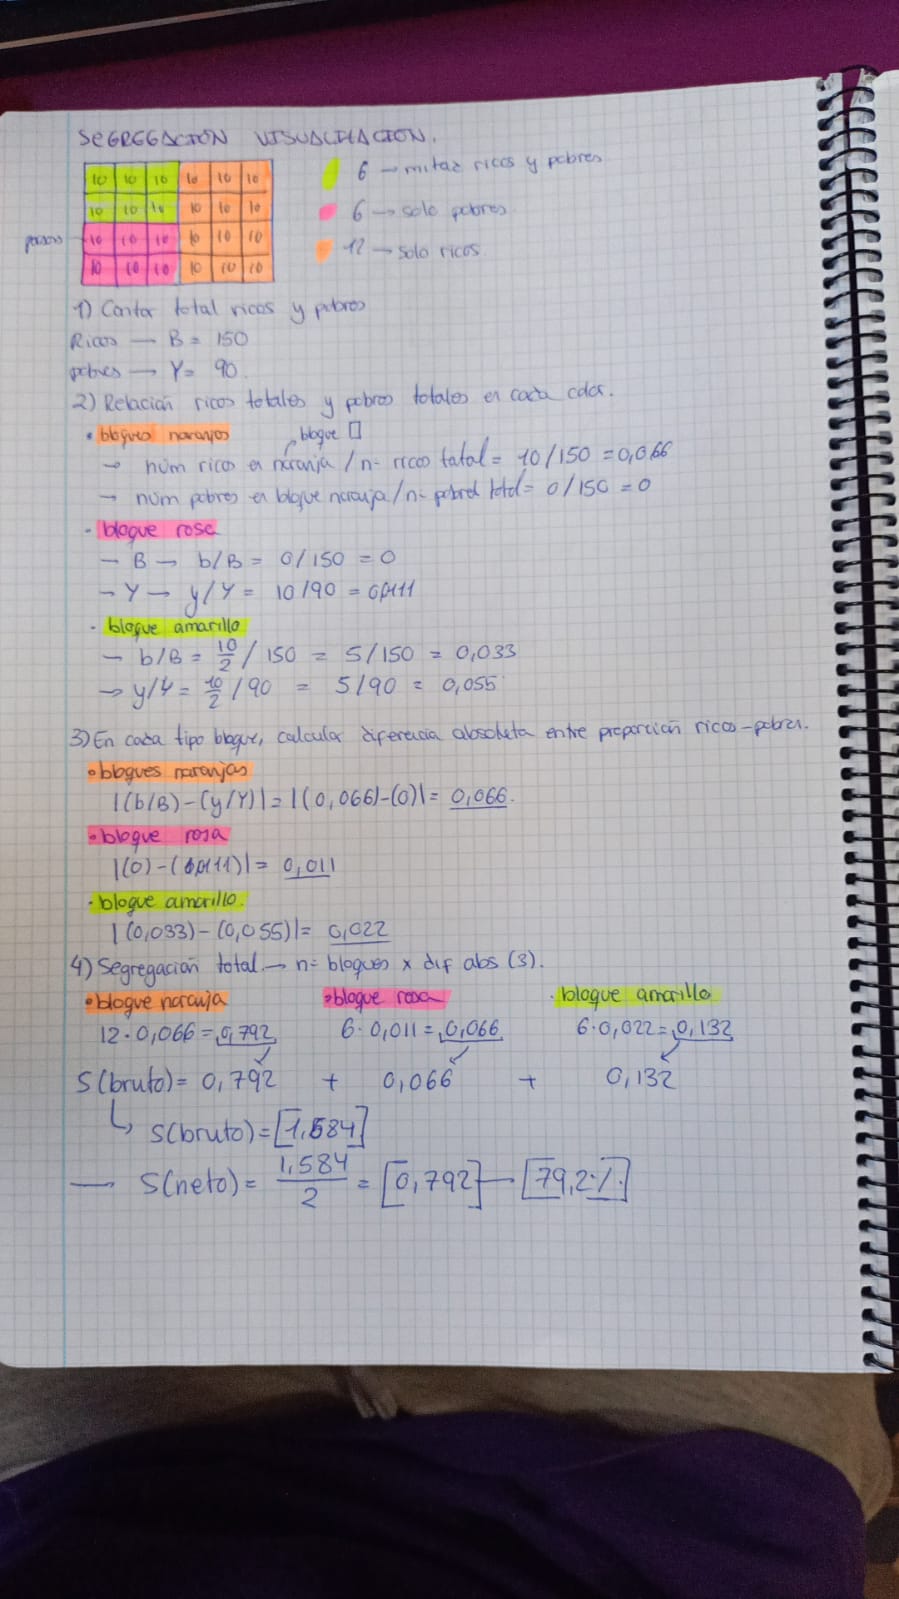 SEGREGACIÓN VISUALIZACION.
10 10 10 10 10 10
10 10 10 10 10 10
personas 10 10 10 10 10 10
10 10 10 10 10 10
6 → mitaz ricos y pobres
6 → solo pobres
12 → solo ricos
1) Contar total ricos y pobres
Ricos → B = 150
pobres → Y = 90.
2) Relación ricos totales y pobres totales en cada color.
• bloques naranjas bloque □
→ num ricos en naranja / nº ricos total = 10/150 = 0,066
→ num pobres en bloque naranja / nº pobres total = 0/150 = 0
· bloque rosa
→ B → b/B = 0/150 = 0
→ Y → y/Y = 10/90 = 0,111
· bloque amarillo
→ b/B = 10/2 / 150 = 5/150 = 0,033
→ y/Y = 10/2 / 90 = 5/90 = 0,055
3) En cada tipo bloque, calcular diferencia absoluta entre proporción ricos-pobres.
• bloques naranjas
|(b/B) - (y/Y)| = |(0,066) - (0)| = 0,066.
• bloque rosa
|(0) - (0,111)| = 0,011
· bloque amarillo.
|(0,033) - (0,055)| = 0,022
4) Segregación total → nº bloques x dif abs (3).
• bloque naranja • bloque rosa · bloque amarillo
12 · 0,066 = 0,792 6 · 0,011 = 0,066 6 · 0,022 = 0,132
S(bruto) = 0,792 + 0,066 + 0,132
S(bruto) = [1,584]
→ S(neto) = 1,584 / 2 = [0,792] → [79,2%.]